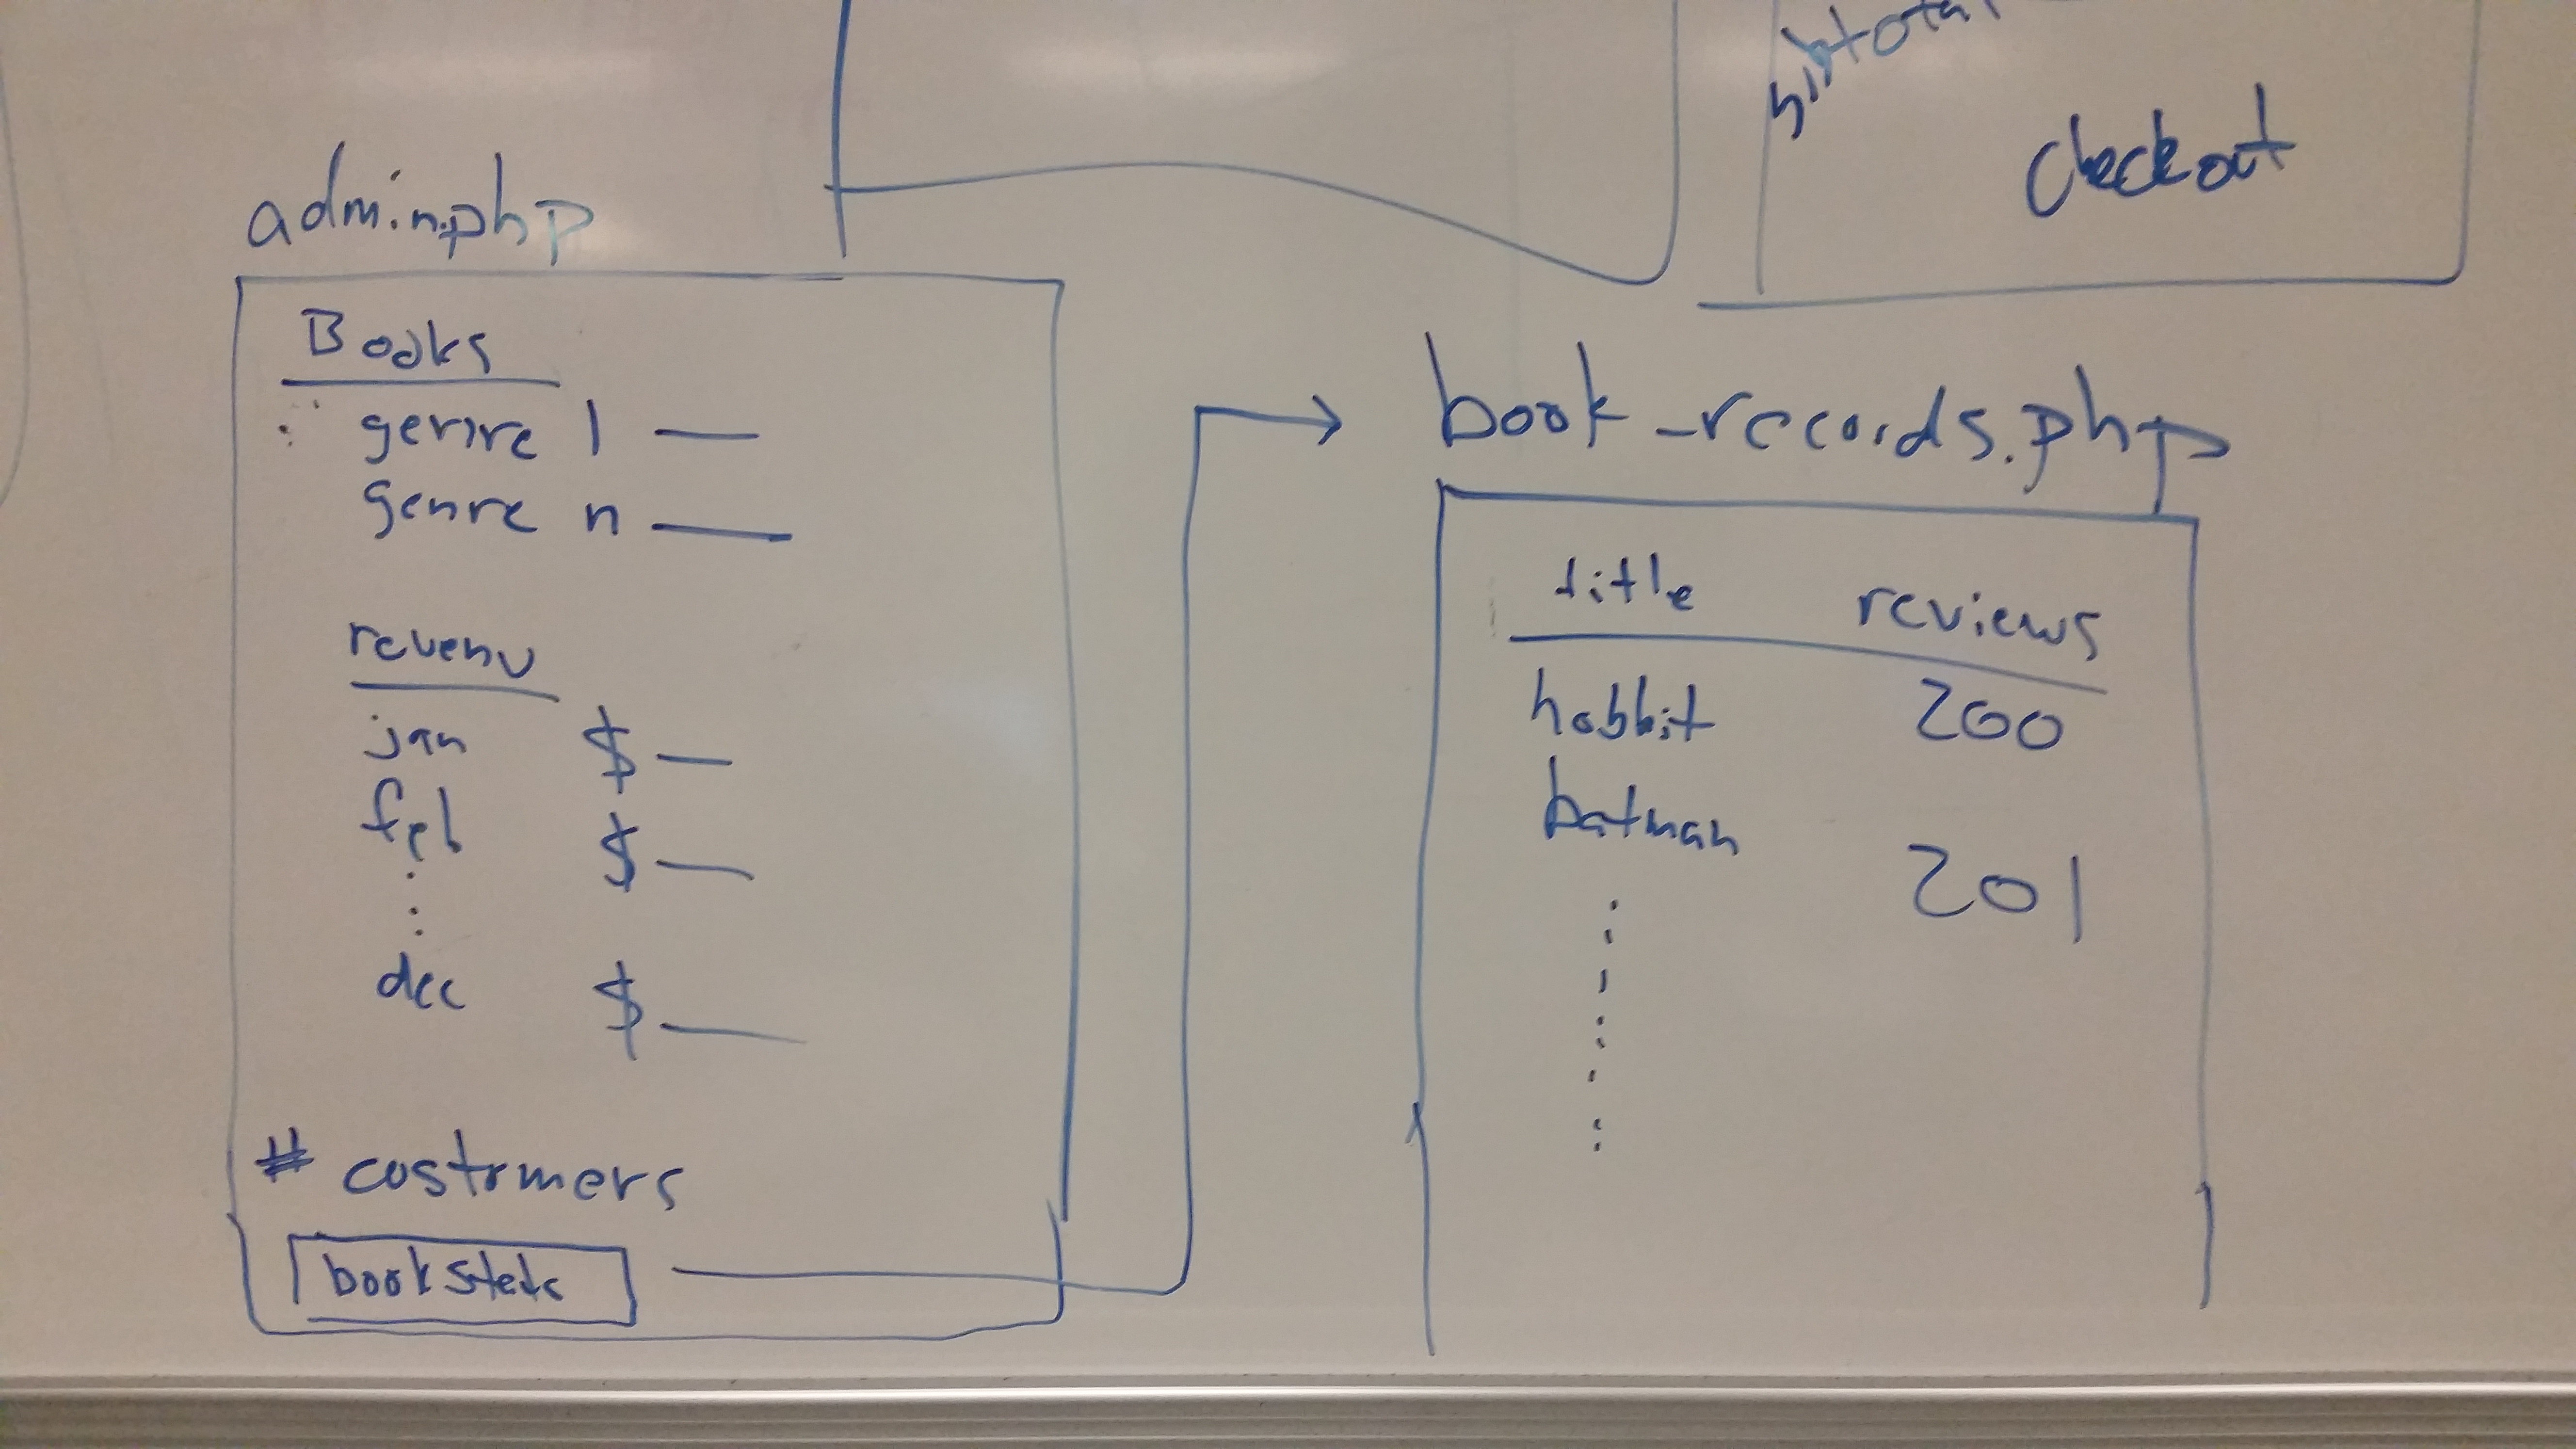 subtotal
Checkout
admin.php
Books
genre 1
genre n
revenu
jan $
feb $
dec $
# customers
book_records.php
title reviews
hobbit 200
batman 201